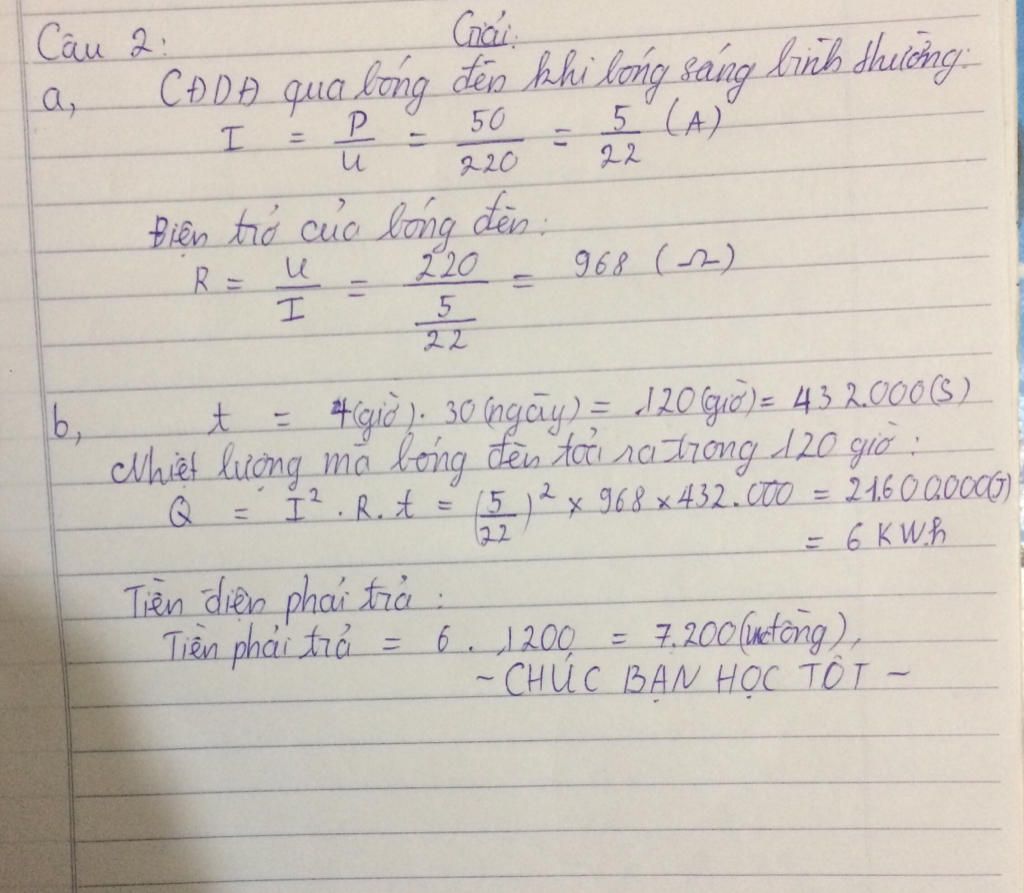 Câu 2: Giải:
a, CĐDĐ qua bóng đèn khi bóng sáng bình thường:
I = P/U = 50/220 = 5/22 (A)
Điện trở của bóng đèn:
R = U/I = 220/(5/22) = 968 (Ω)
b, t = 4(giờ). 30(ngày) = 120(giờ) = 432.000(S)
Nhiệt lượng mà bóng đèn tỏa ra trong 120 giờ:
Q = I². R. t = (5/22)² × 968 × 432.000 = 21.600.000(J)
= 6 KW.h
Tiền điện phải trả:
Tiền phải trả = 6 . 1200 = 7.200(đồng),
~ CHÚC BẠN HỌC TỐT ~